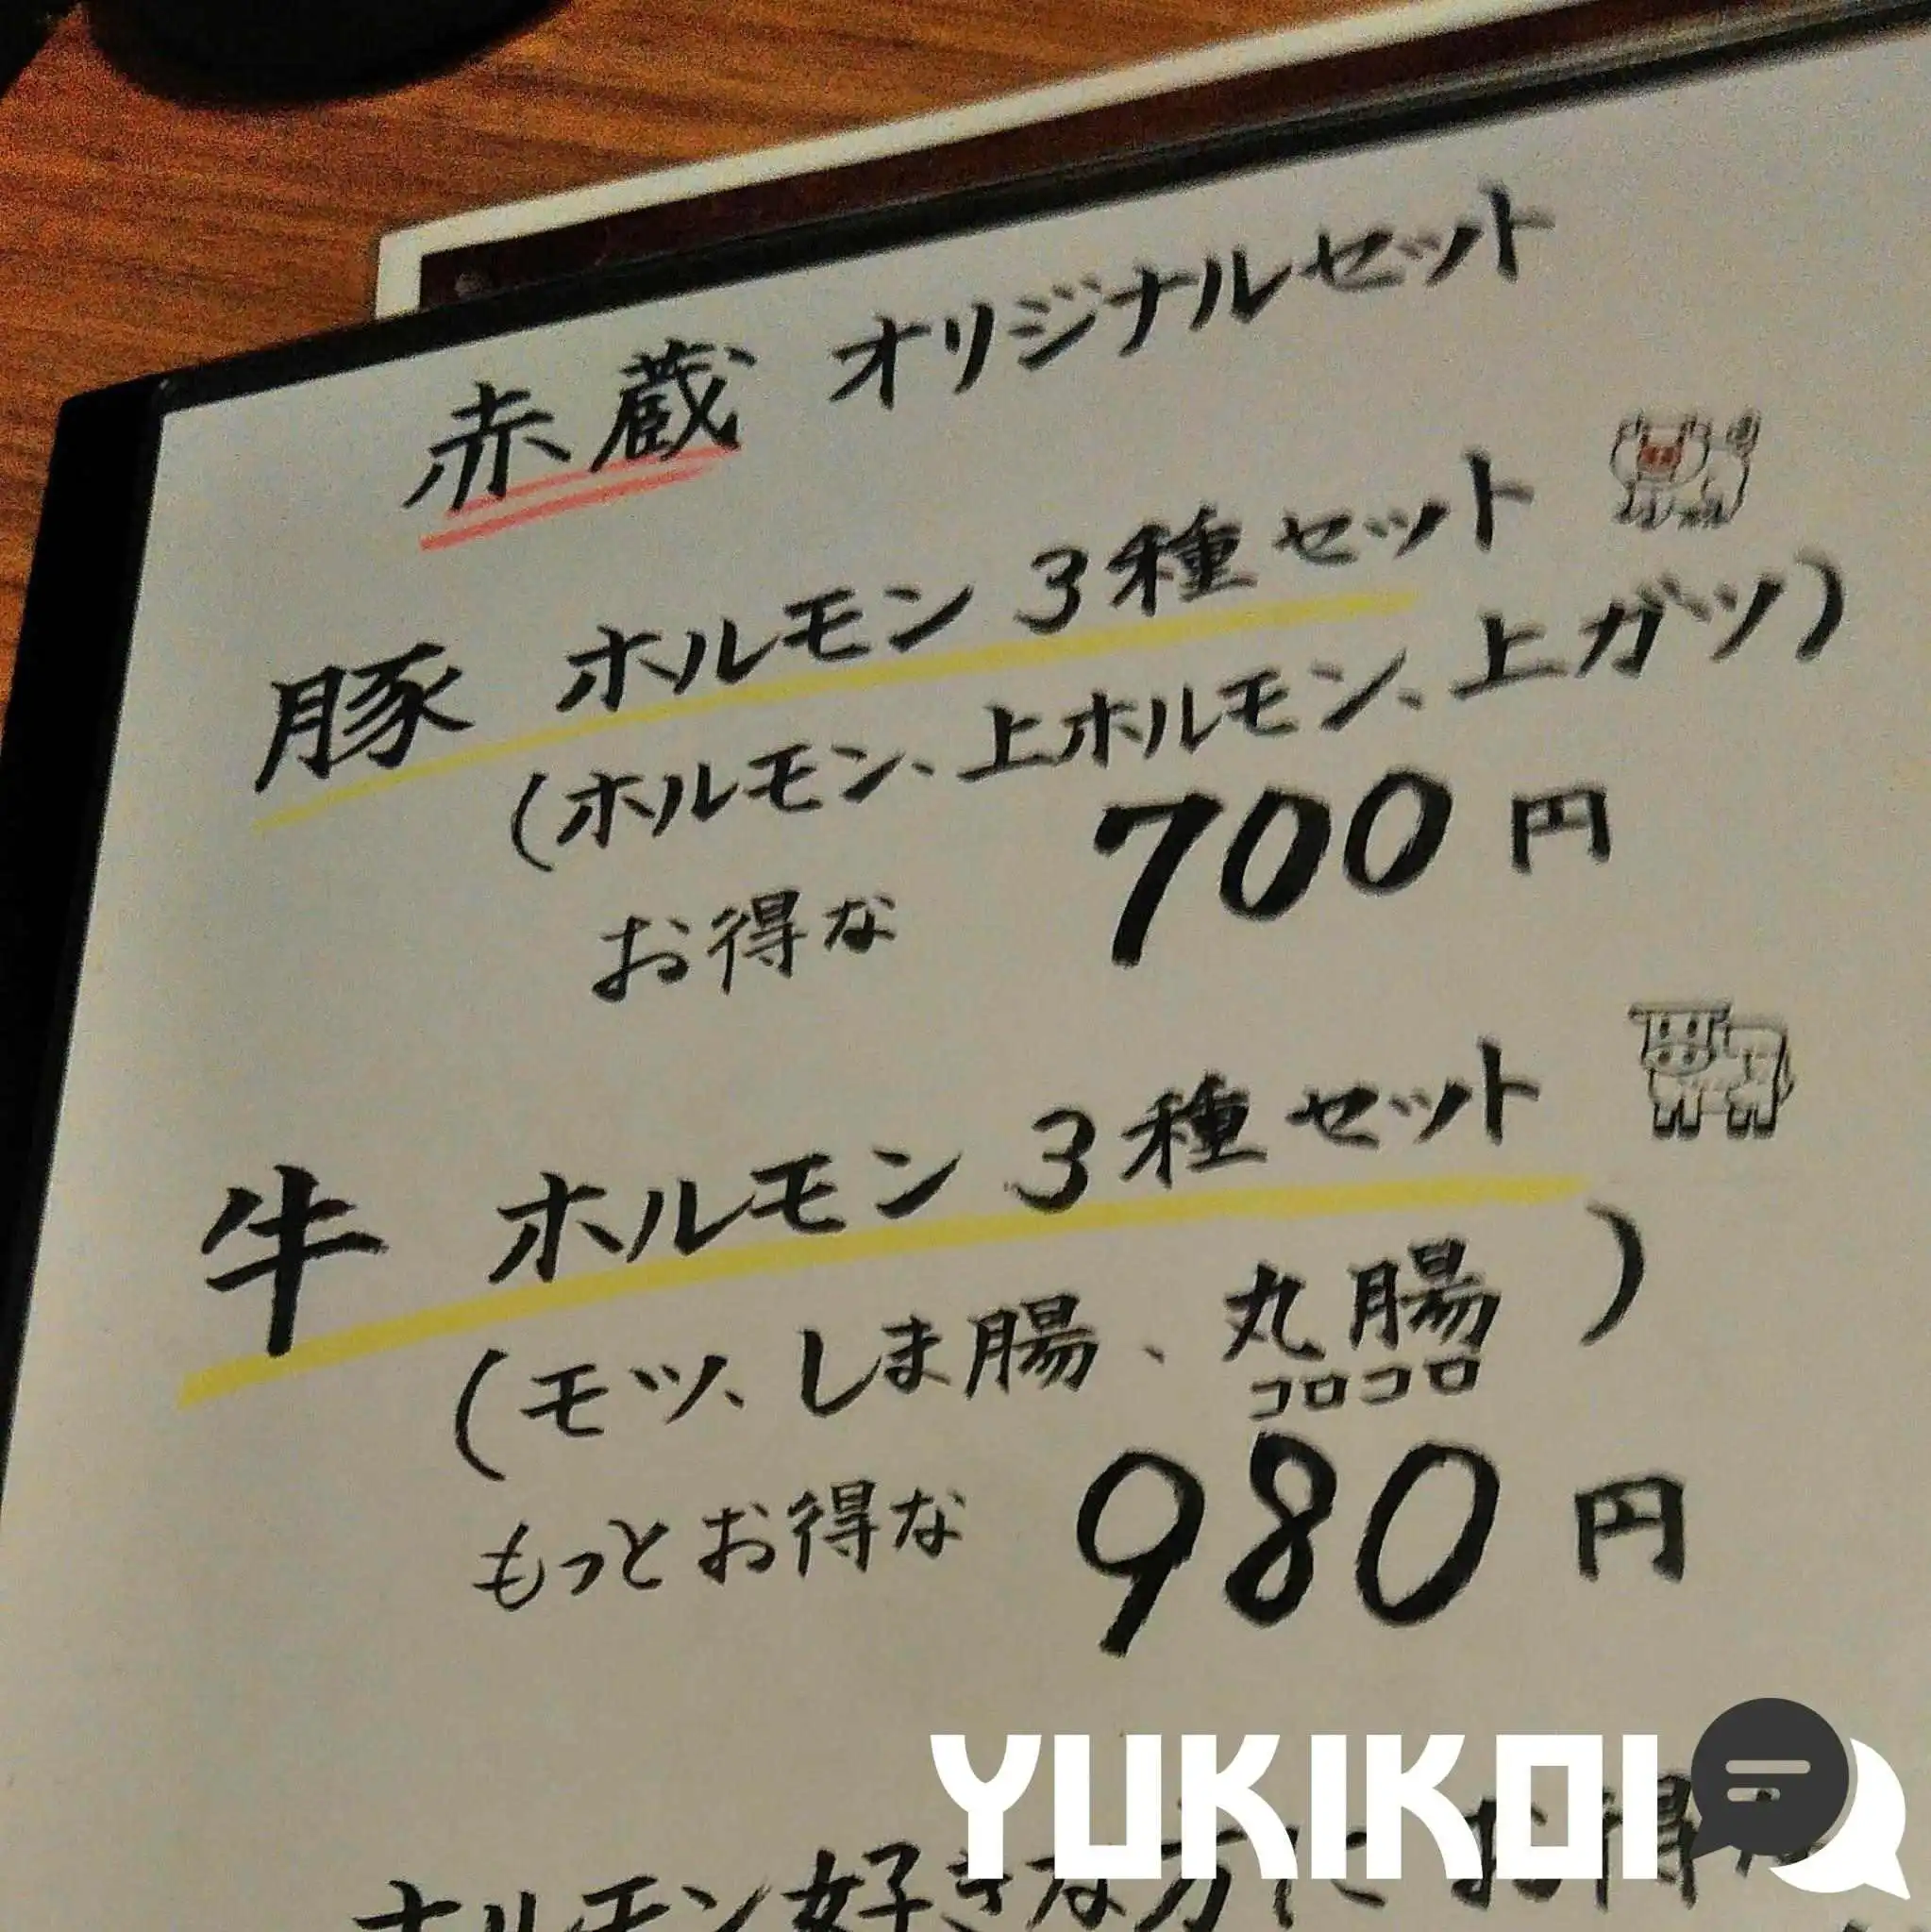 赤蔵 オリジナルセット
豚 ホルモン 3種セット
(ホルモン、上ホルモン、上ガツ)
お得な 700円
牛 ホルモン 3種セット
(モツ、しま腸、丸腸)
コロコロ
もっとお得な 980円
YUKIKOI
ホルモン好きな方にお得